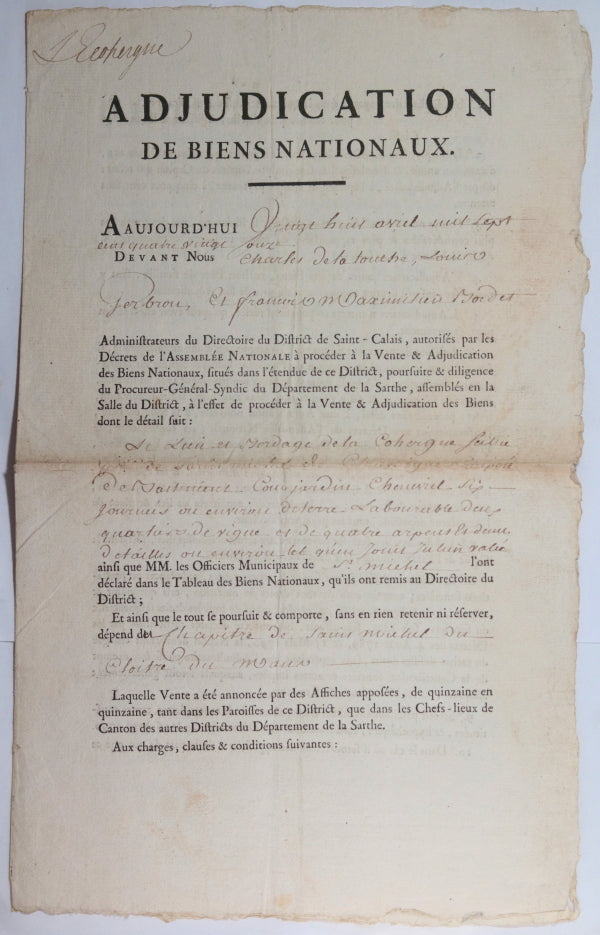 L'Ecohergne
ADJUDICATION
DE BIENS NATIONAUX.
AAUJOURD'HUI Vingt huit avril mil sept
cent quatre vingt onze
DEVANT Nous Charles de la touche, Louis
Jerbrou, Et françois Maximilien Bordet
Administrateurs du Directoire du District de Saint-Calais, autorisés par les
Décrets de l'ASSEMBLÉE NATIONALE à procéder à la Vente & Adjudication
des Biens Nationaux, situés dans l'étendue de ce District, poursuite & diligence
du Procureur-Général-Syndic du Département de la Sarthe, assemblés en la
Salle du District, à l'effet de procéder à la Vente & Adjudication des Biens
dont le détail suit :
Le Lieu et Bordage de la Cohergne
de saint michel de
De Bastiment Cour jardin Chenevril Six
Journées ou environ de terre Labourable deux
quartiers de vigne et de quatre arpents
de tailles ou environ tel qu'en jouit Julien
ainsi que MM. les Officiers Municipaux de St. michel l'ont
déclaré dans le Tableau des Biens Nationaux, qu'ils ont remis au Directoire du
District ;
Et ainsi que le tout se poursuit & comporte, sans en rien retenir ni réserver,
dépend du Chapitre de saint Michel du
Cloitre du Mans
Laquelle Vente a été annoncée par des Affiches apposées, de quinzaine en
quinzaine, tant dans les Paroisses de ce District, que dans les Chefs-lieux de
Canton des autres Districts du Département de la Sarthe.
Aux charges, clauses & conditions suivantes :